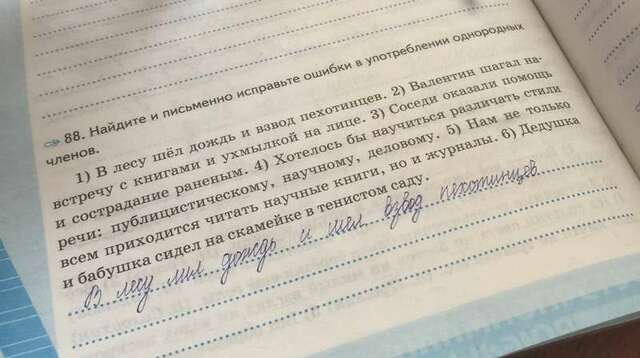 88. Найдите и письменно исправьте ошибки в употреблении однородных
членов.
1) В лесу шёл дождь и взвод пехотинцев. 2) Валентин шагал на-
встречу с книгами и ухмылкой на лице. 3) Соседи оказали помощь
и сострадание раненым. 4) Хотелось бы научиться различать стили
речи: публицистическому, научному, деловому. 5) Нам не только
всем приходится читать научные книги, но и журналы. 6) Дедушка
и бабушка сидел на скамейке в тенистом саду.
В лесу лил дождь и шел взвод пехотинцев